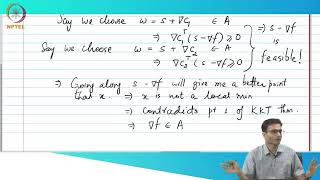 NPTEL
Say we choose w = s + ∇c₁ ∈ A
⇒ ∇c₁ᵀ(s − ∇f) ≥ 0
Say we choose w = s + ∇c₂ ∈ A
⇒ ∇c₂ᵀ(s − ∇f) ≥ 0
⇒ s − ∇f is feasible!
⇒ Going along s − ∇f will give me a better point
than x. ⇒ x is not a local min
⇒ contradicts pt 1 of KKT thm.
⇒ ∇f ∈ A